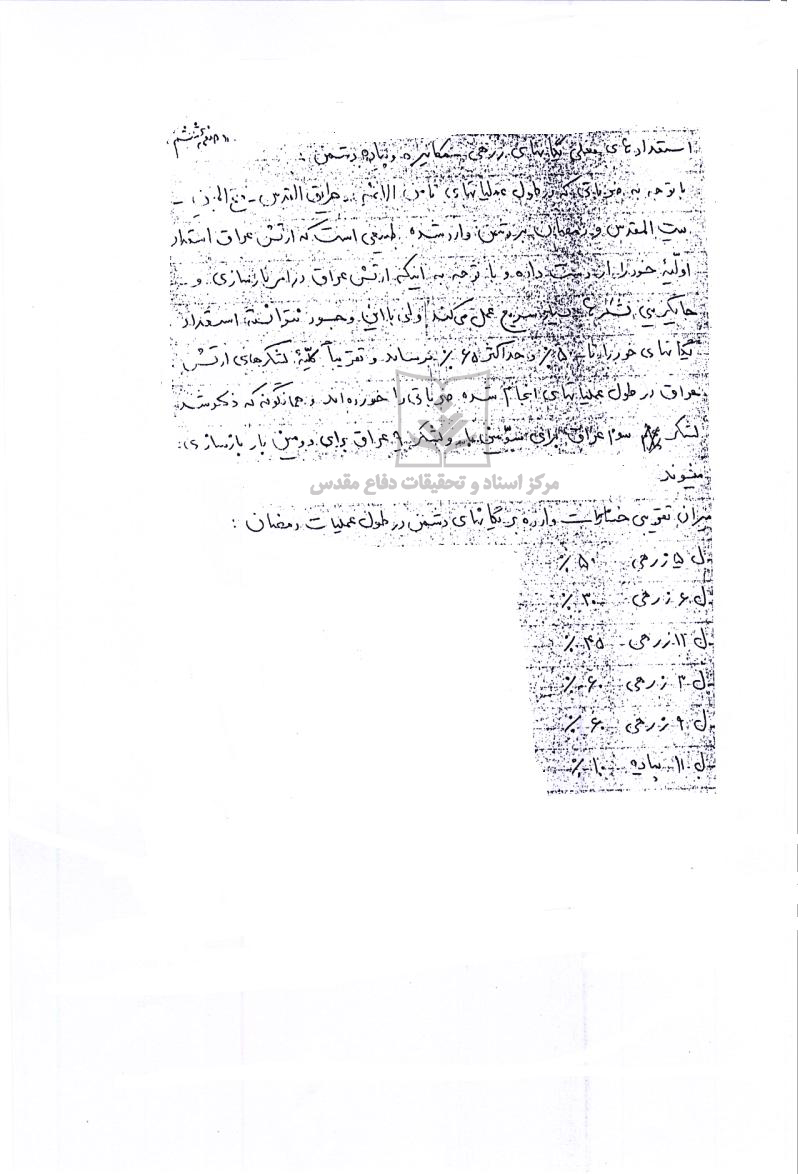 "صفحه ششم"
استعدادهای فعلی یگانهای زرهی، مکانیزه و پیاده دشمن :
با توجه به ضرباتی که در طول عملیاتهای ثامن الائمه - طریق القدس - فتح المبین -
بیت المقدس و رمضان بر دشمن وارد شده طبیعی است که ارتش عراق استعداد
اولیه خود را از دست داده و با توجه به اینکه ارتش عراق در امر بازسازی و
جایگزینی نفرات بسیار سریع عمل می‌کند ولی با این وجود نتوانسته استعداد
یگانهای خود را تا ۵۰٪ و حداکثر ۶۵٪ برساند و تقریباً کلیه لشکرهای ارتش
عراق در طول عملیاتهای انجام شده ضرباتی را خورده‌اند و همانگونه که ذکر شد
لشکر سوم عراق برای سومین بار و لشکر ۹ عراق برای دومین بار بازسازی
میشوند
مرکز اسناد و تحقیقات دفاع مقدس
میزان تقریبی خسارات وارده بر یگانهای دشمن در طول عملیات رمضان :
ل ۵ زرهی ۵۰٪
ل ۶ زرهی ۳۰٪
ل ۱۲ زرهی ۴۵٪
ل ۳ زرهی ۶۰٪
ل ۹ زرهی ۶۰٪
ل ۱۱ پیاده ۱۰٪